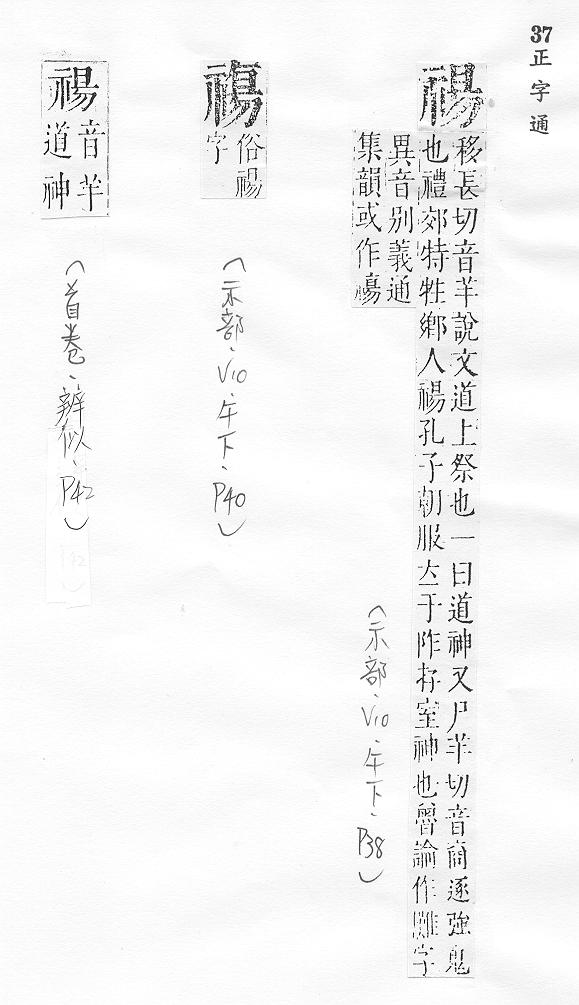 37正字通
禓
移長切音羊說文道上祭也一曰道神又尸羊切音商逐強鬼
也禮郊特牲鄉人禓孔子朝服立于阼存室神也魯論作難字
異音別義通
集韻或作禓
(示部、V10、午下、P38)
俗禓
字
(示部、V10、午下、P40)
禓
音羊
道神
(首卷、辨似、P42)